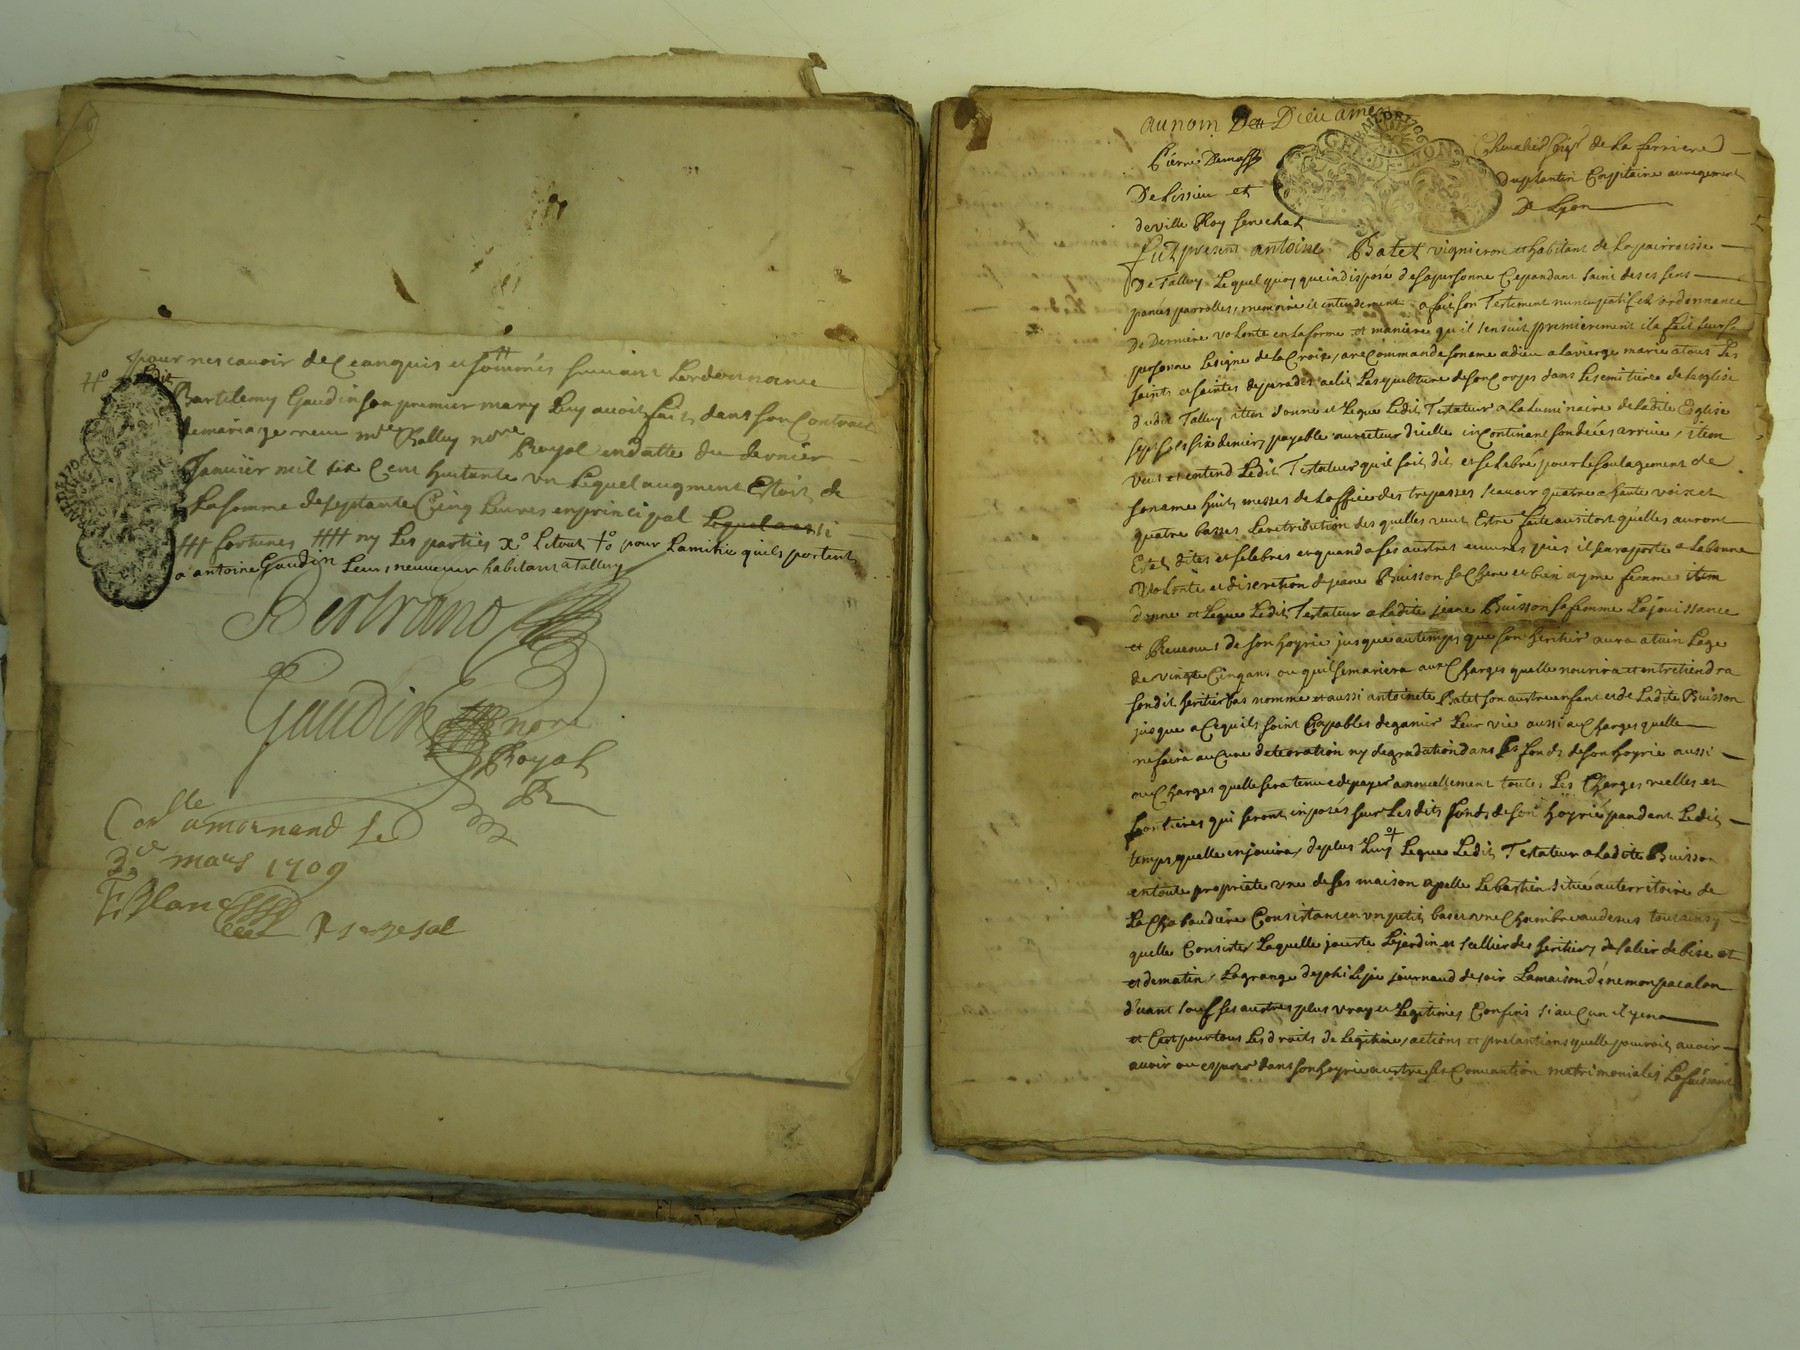 pour nes cavoir de Ceanquis et sommés suivant Lordonnance
Ledit
Bartelemy Gaudin son premier mary Luy avoit fait dans son Contrait
de mariage receu me Thalley nore Royal en datte du dernier
Janvier mil six Cent huitante un Lequel augment Estoit de
La somme de septante Cinq Livres en principal Lequel a esté
fortunes ny Les parties xo Le tout to pour Lamitié quils portent
a antoine Gaudin Leur neuveur habitant a talluy
Bertrand
Gaudin nore
Royal
R
Conlle a mornand le
3e mars 1709
Blanc
au nom De Dieu amen
GEN DE LYON
Pierre Chevalier seigr de La ferriere
De Lissieu et du plantin Capitaine au regiment
de ville Roy senechal De Lyon
fut present antoine Batet vigneron et habitant de La parroisse
De Talluy Lequel quoy que indisposé de sa personne Cependant saint de ses sens
pancés parrolles, memoire et entendement a fait son Testement nuncupatif et ordonnance
De Derniere volonte en la forme et maniere qu'il sensuit premierement il a fait sur sa
personne Le signe de la Croix, a recommandé son ame a dieu a la vierge marie a tous Les
saints et saintes de paradis a elit La sepulture de son Corps dans Le semitiere de Leglise
dudit Talluy item donne et Legue Ledit Testateur a La Luminaire de Ladite Eglise
sept sols six deniers payable au recteur dicelle incontinant son decés arrivé, item
veut et entend Ledit Testateur qu'il soit dit et selebré pour le soulagement de
son ame huit messes de Loffice des trepasses scavoir quatre a haute voix et
quatre basses La retribution des quelles veut Estre faite ausitost qu'elles auront
Esté dites et selebres et quand a ses austres euvres pies il sen raporte a La bonne
Volonte et discretion de jeane Buisson sa Chere et bien aymé femme item
donne et Legue Ledit Testateur a Ladite jeane Buisson sa femme La jouissance
et Revenus de son hoyrie jusque au temps que son heritier aura atuin Lage
de vingte Cinq ans ou quil se mariera aux Charges quelle nourira et entretiendra
sondit heritier bas nommé et aussi antoinete Batet son austre enfant et de Ladite Buisson
jusque a Ce quils soint Capables de ganier Leur vie aussi aux Charges quelle
ne faira aucune deteoration ny degradation dans Les fonds de son hoyrie aussi
aux Charges quelle sera tenue de payer annuellement toutes Les Charges reelles et
fontieres qui seront inposés sur Lesdits fonds de son hoyrie pandant Ledit
temps quelle en jouira, de plus Luy Legue Ledit Testateur a Ladite Buisson
en toute propriete une de ses maison apelle Le bastien situé au territoire de
La Chabaudiere Consistant en un petit bas et une Chambre au desus tout ainsy
quelle Consiste, Laquelle jouxte Le jardin et sellier des heritiers de salier de bise et
et de matin, La grange de philipe journaud de soir La maison d'enemon pacalon
d'vant sauf ses austres plus vray et Legitimes Confins si aucun il y en a
et C'est pour tous Les droits de Legitime, actions et pretantions quelle pouroit avoir
avoir ou esperer dans son hoyrie austre ses Convantion matrimoniales La faisant